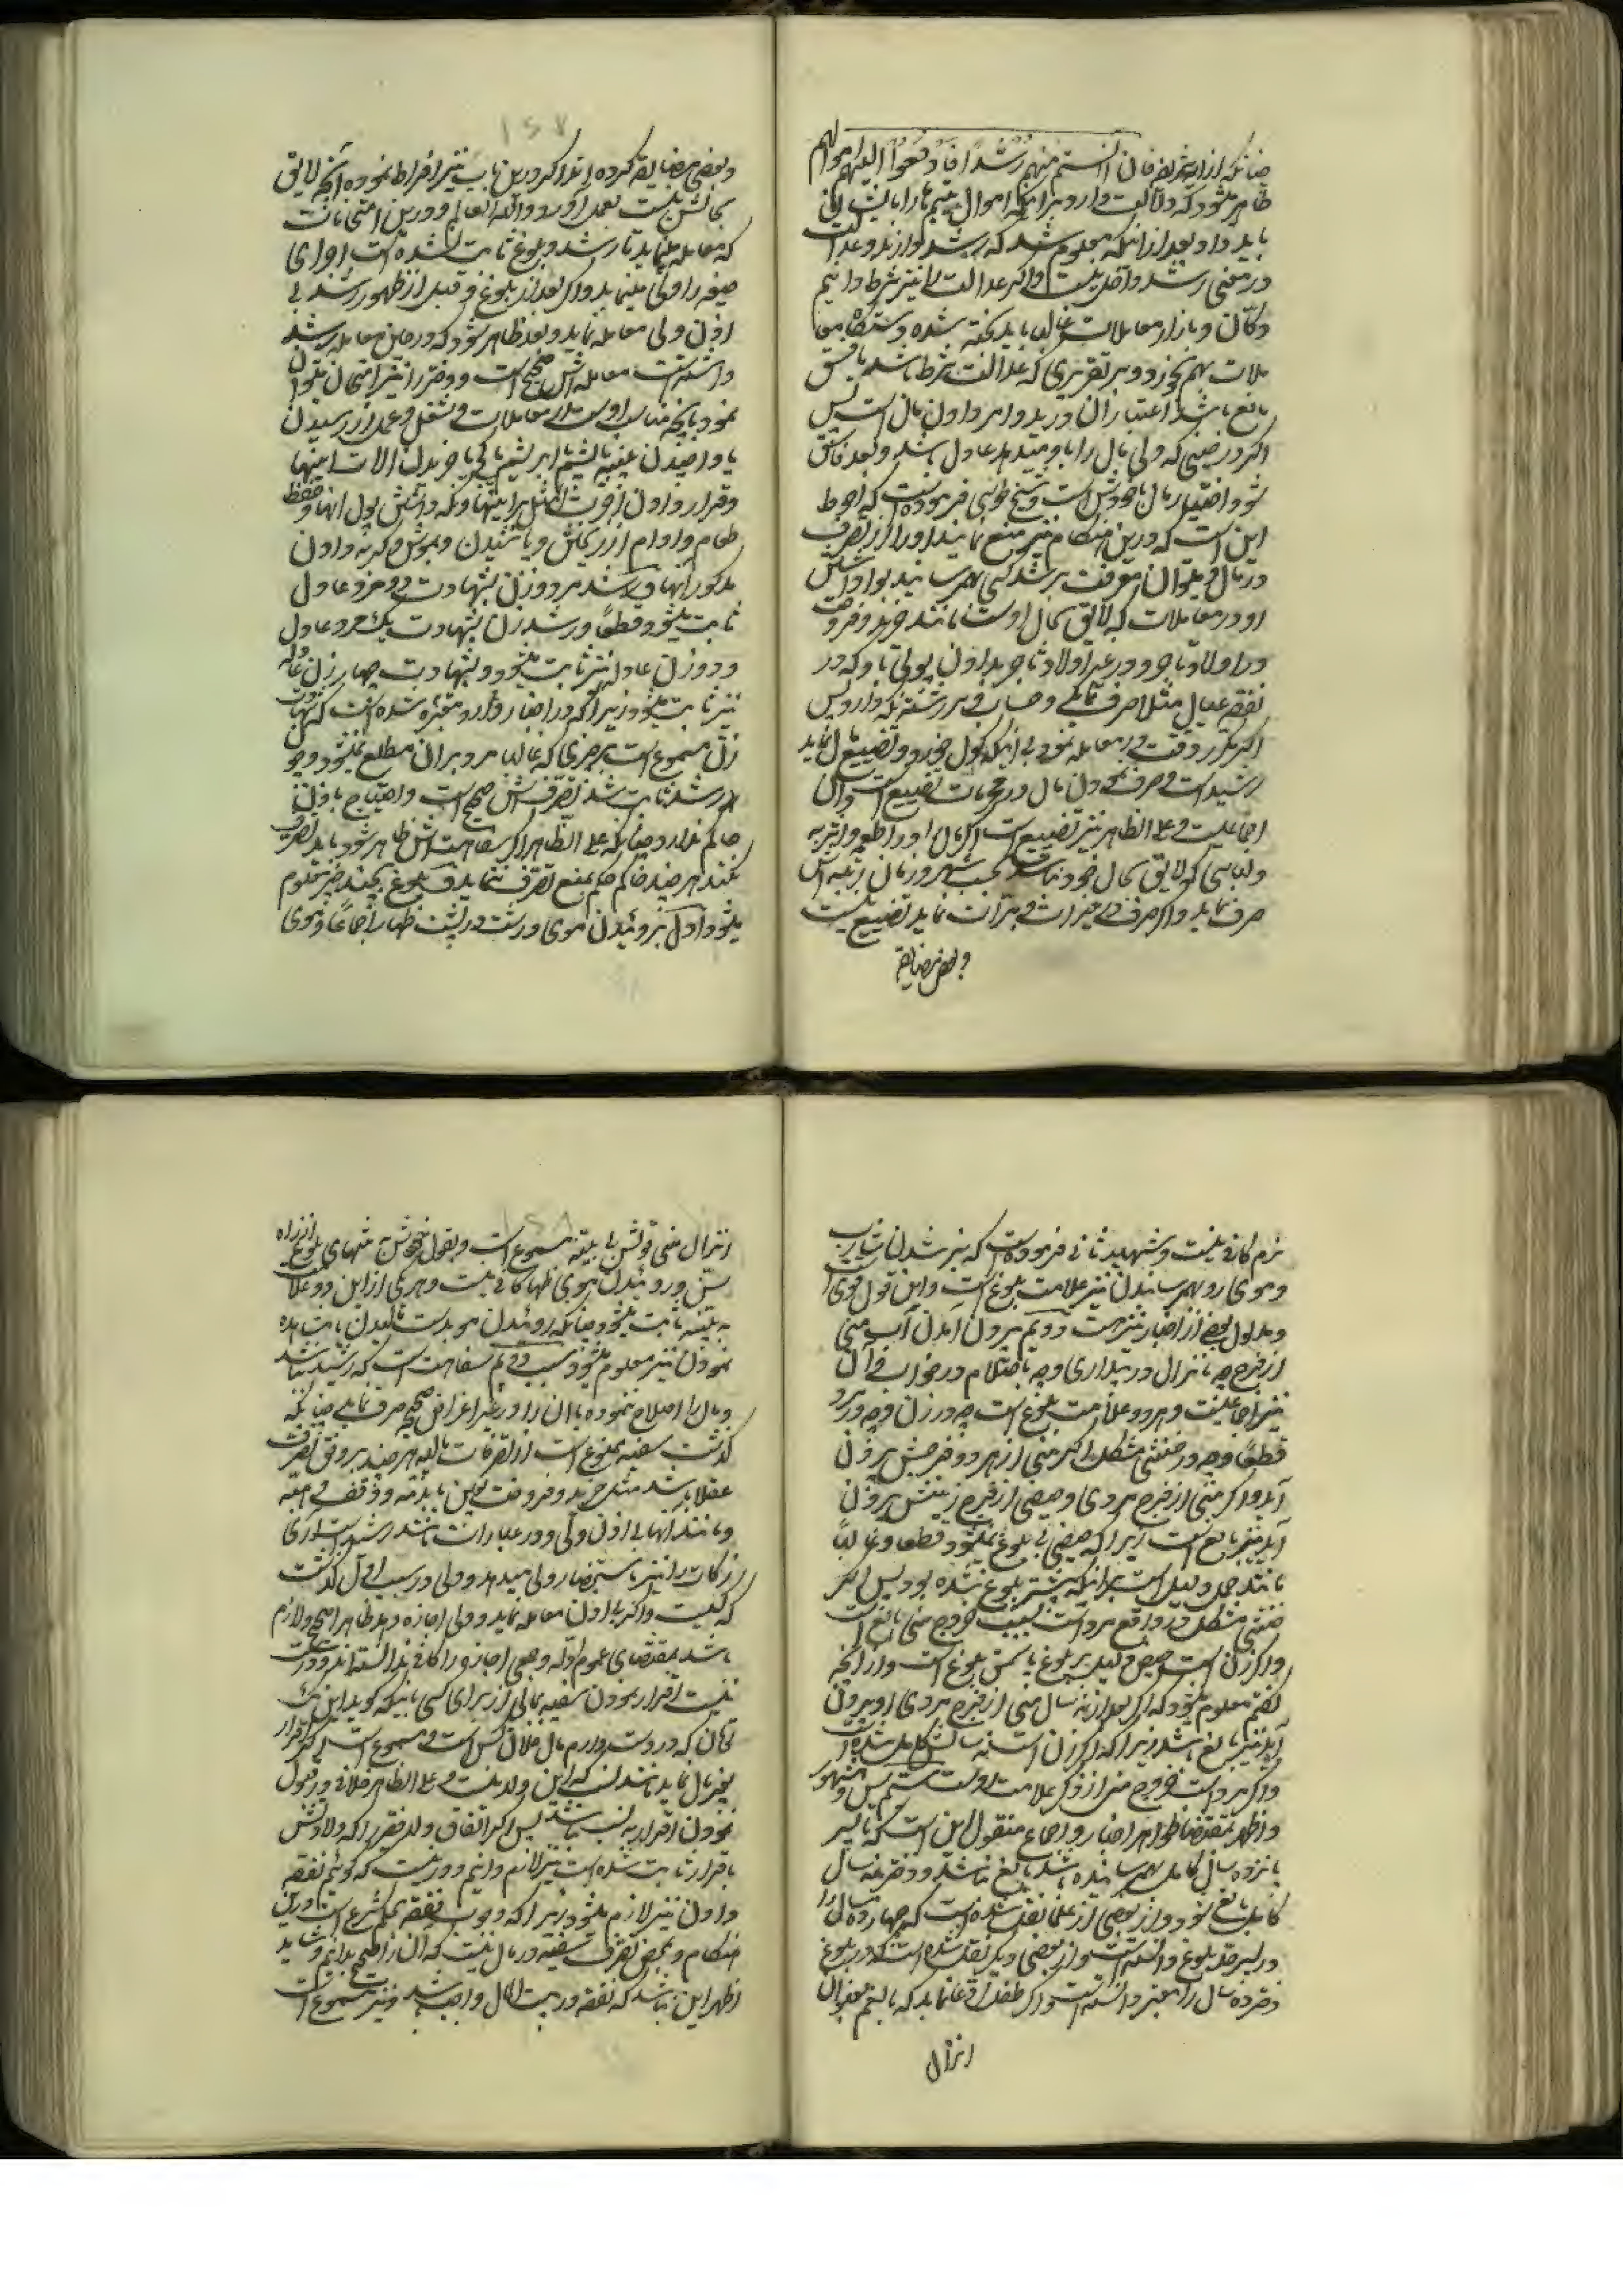 چنانکه از آیه شریفه فان آنستم منهم رشدا فادفعوا الیهم اموالهم
ظاهر میشود که دلالت دارد بر آنکه اموال یتیم را باید
باید داد بعد از آنکه معلوم شد که رشد دارند و عدالت
در معنی رشد داخل نیست و اگر عدالت را نیز شرط دانیم
دکان و بازار معاملات باید شده
ملات بهم نخورد و بر تقدیری که عدالت شرط باشد یا فسق
مانع باشد اعتبار آن در بدو امر دادن مال است پس
اگر در حینی که ولی مال را باو میدهد عادل باشد و بعد فاسق
شود اختیار مال با خودش است و شیخ طوسی فرموده است که احوط
این است که درین هنگام نیز منع نمایند او را از تصرف
در مال و میتوان معرفت برشد کسی بهم رسانید
او در معاملات که لایق بحال اوست مانند خرید و فروخت
در اولاد تاجر و در غیر اولاد تاجر بدادن پولی باو که در
نفقه عیال مثلا صرف نماید و حساب
اگر مکرر وقت معامله نمود بی آنکه گول خورد و تضییع مال نماید
رشید است و صرف نمودن مال در محرمات تضییع است و آن
اجماعیست و علی الظاهر نیز تضییع است اگر مال را در اطعمه و اشربه
و لباسی که لایق بحال خود نباشد بحسب شهر و زمان و رتبه اش
صرف نماید و اگر صرف در خیرات و مبرات نماید تضییع نیست
و بعضی مضایقه
و بعضی مضایقه کرده اند اگر درین باب نیز افراط نموده آنچه لایق
بحالش نیست بعمل آورد والله العالم و درین امتحانات
که معامله مینماید تا رشد و بلوغ ثابت شده است اجرای
صیغه را ولی مینماید و اگر بعد از بلوغ و قبل از ظهور رشد بی
اذن ولی معامله نماید و بعد ظاهر شود که در حین معامله رشد
داشته است معامله اش صحیح است و دختر را نیز امتحان میتوان
نمود بآنچه مناسب اوست از معاملات و شغل و عمل از رسیدن
یا و اخیدن پنبه یا پشم یا ابریشم یا خریدن آلات اینها
و قرار دادن اجرت مثل برای اینها و نگه داشتن پول آنها و حفظ
طعام و ادام از ریختن و پاشیدن و موش و گربه و دادن
مذکور آنها و رشد مرد و زن بشهادت دو مرد عادل
ثابت میشود قطعا و رشد زن بشهادت یک مرد عادل
و دو زن عادله نیز ثابت میشود و بشهادت چهار زن عادله
نیز ثابت میشود زیرا که در اخبار وارد شده است که شهادت
زن مسموع است در چیزی که غالبا مرد بر آن مطلع نمیشود و چون
رشد ثابت شد تصرفش صحیح است و احتیاج باذن
حاکم ندارد چنانکه علی الظاهر اگر سفاهتش ظاهر شود باید تصرف
نکند هر چند حاکم حکم بمنع تصرف ننماید و بلوغ بچند چیز معلوم
میشود اول بروئیدن موی درشت در پشت ظهار اجماعا و موی
نرم کافی نیست و شهید ثانی فرموده است که سبز شدن شارب
و موی رو بهم رساندن نیز علامت بلوغ است و این قول قوی است
و مدلول بعضی از اخبار نیز هست دویم بیرون آمدن آب منی
از فرج چه بانزال در بیداری و چه باحتلام در خواب و آن
نیز اجماعیست و هر دو علامت بلوغ است چه در زن و چه در مرد
قطعا و چه در خنثی مشکل اگر منی از هر دو فرجش بیرون
آید و اگر منی از فرج مردی و حیض از فرج زنیش بیرون
آید نیز بالغ است زیرا که حیض بی بلوغ نمیشود قطعا و غالبا
مانند حمل دلیل است بر آنکه پیشتر بلوغ شده بود پس اگر
خنثی مشکل در واقع مرد است بسبب خروج منی بالغ است
و اگر زن است حیض دلیل بر بلوغ یا سن بلوغ است و از آنچه
گفتیم معلوم میشود که اگر بعد از نه سال منی از فرج مردی او بیرون
آید نیز بالغ باشد زیرا که اگر زن است نه سالش کامل شده است
و اگر مرد است خروج منی از ذکر علامت اوست سیم سن و مشهور
و اظهر بمقتضا ظواهر اخبار و اجماع منقول این است که تا پسر
پانزده سال کامل بهم نرسانیده باشد بالغ نباشد و دختر نه سال
کامل بالغ شود و از بعضی از علما نقل شده است که چهارده سال را
در پسر حد بلوغ دانسته است و از بعضی دیگر نقل شده است که در بلوغ
دختر ده سال را معتبر دانسته است و اگر طفل ادعا نماید که بالغم بعنوان
انزال
انزال منی قولش بی بینه مسموع است و بقول خودش تنهای بلوغ از راه
سن و روئیدن موی ظهار کافی نیست و هر یک ازین دو علامت
به بینه ثابت میشود چنانکه روئیدن مو بدست مالیدن یا مشاهده
نمودن نیز معلوم میشود سبب دویم سفاهت است که رشید نباشد
و مال را اصلاح ننموده یا آن را در غیر اغراض صحیحه صرف نماید چنانکه
گذشت سفیه ممنوع است از تصرفات مالیه هر چند بر وفق تصرف
عقلا باشد مثل خرید و فروخت و وقف و هبه
و مانند آنها بی اذن ولی و در عبارات مانند رشید است آری
زکات را نیز باستحضار ولی میدهد و ولی در سبب اول گذشت
که کیست و اگر بی اذن معامله نماید و ولی اجازه دهد ظاهرا صحیح و لازم
باشد بمقتضای عموم ادله و بعضی اجازه را کافی ندانسته اند و درست
نیست اقرار نمودن سفیه بمالی از برای کسی باینکه گوید این
که در دست دارم مال فلان کس است و مسموع است اگر اقرار
بغیر مال نماید مانند نسب که این ولد منست و علی الظاهر خلافی در قبول
نمودن اقرار به نسب نباشد پس اگر اتفاق ولد فقیر را که ولادتش
باقرار ثابت شده است نیز لازم دانیم دور نیست که گوئیم نفقه
دادن نیز لازم میشود زیرا که وجوب نفقه بحکم شرع است در آن
هنگام و محض تصرف سفیه در مال نیست که آن را صحیح ندانیم و شاید
اظهر این باشد که نفقه در بیت المال واجب باشد و نیز مسموع است